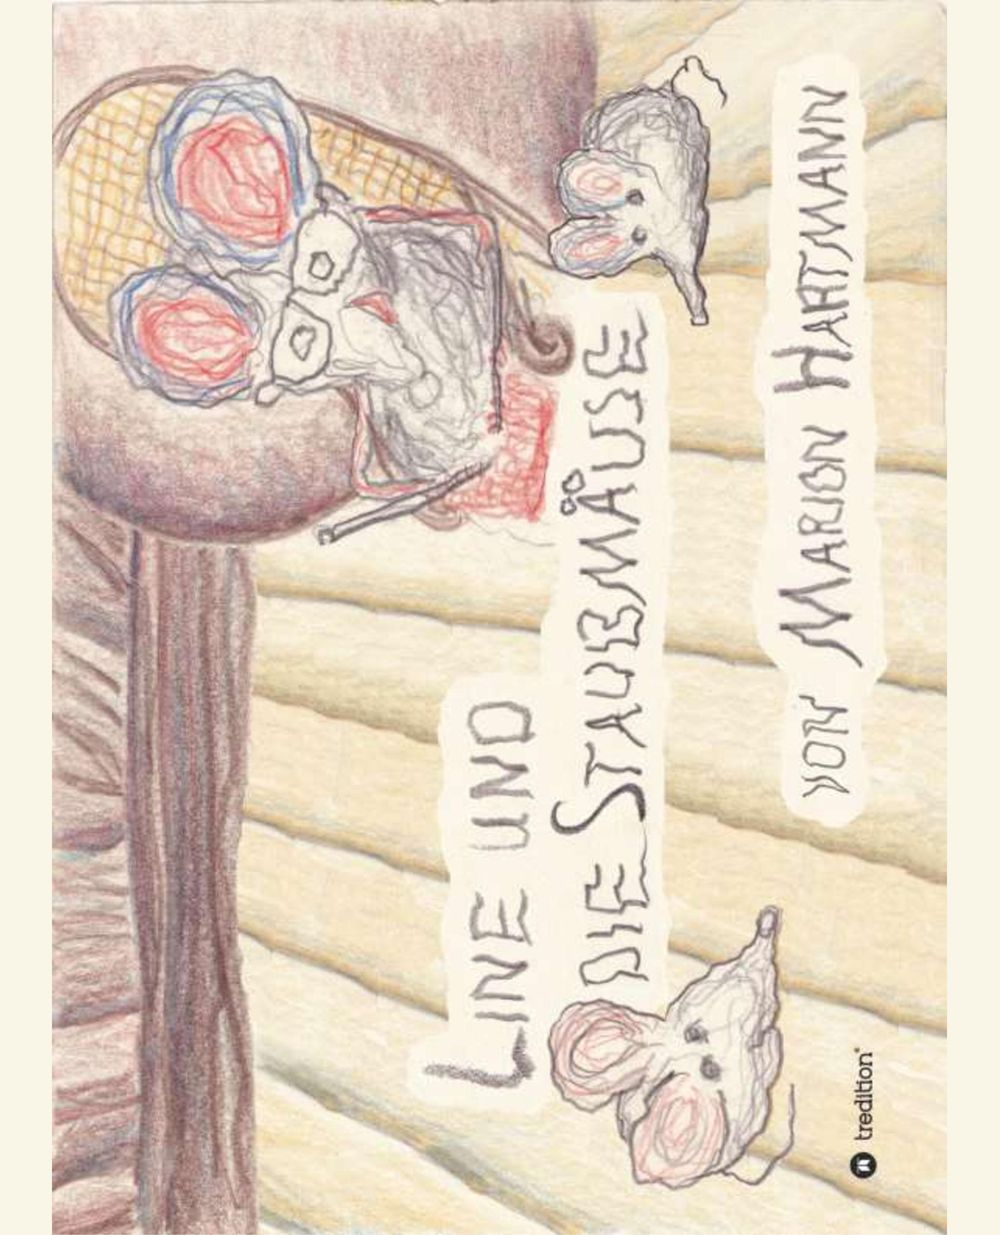 LINE UND
DIE STAUBMÄUSE
VON MARION HARTMANN
tredition®